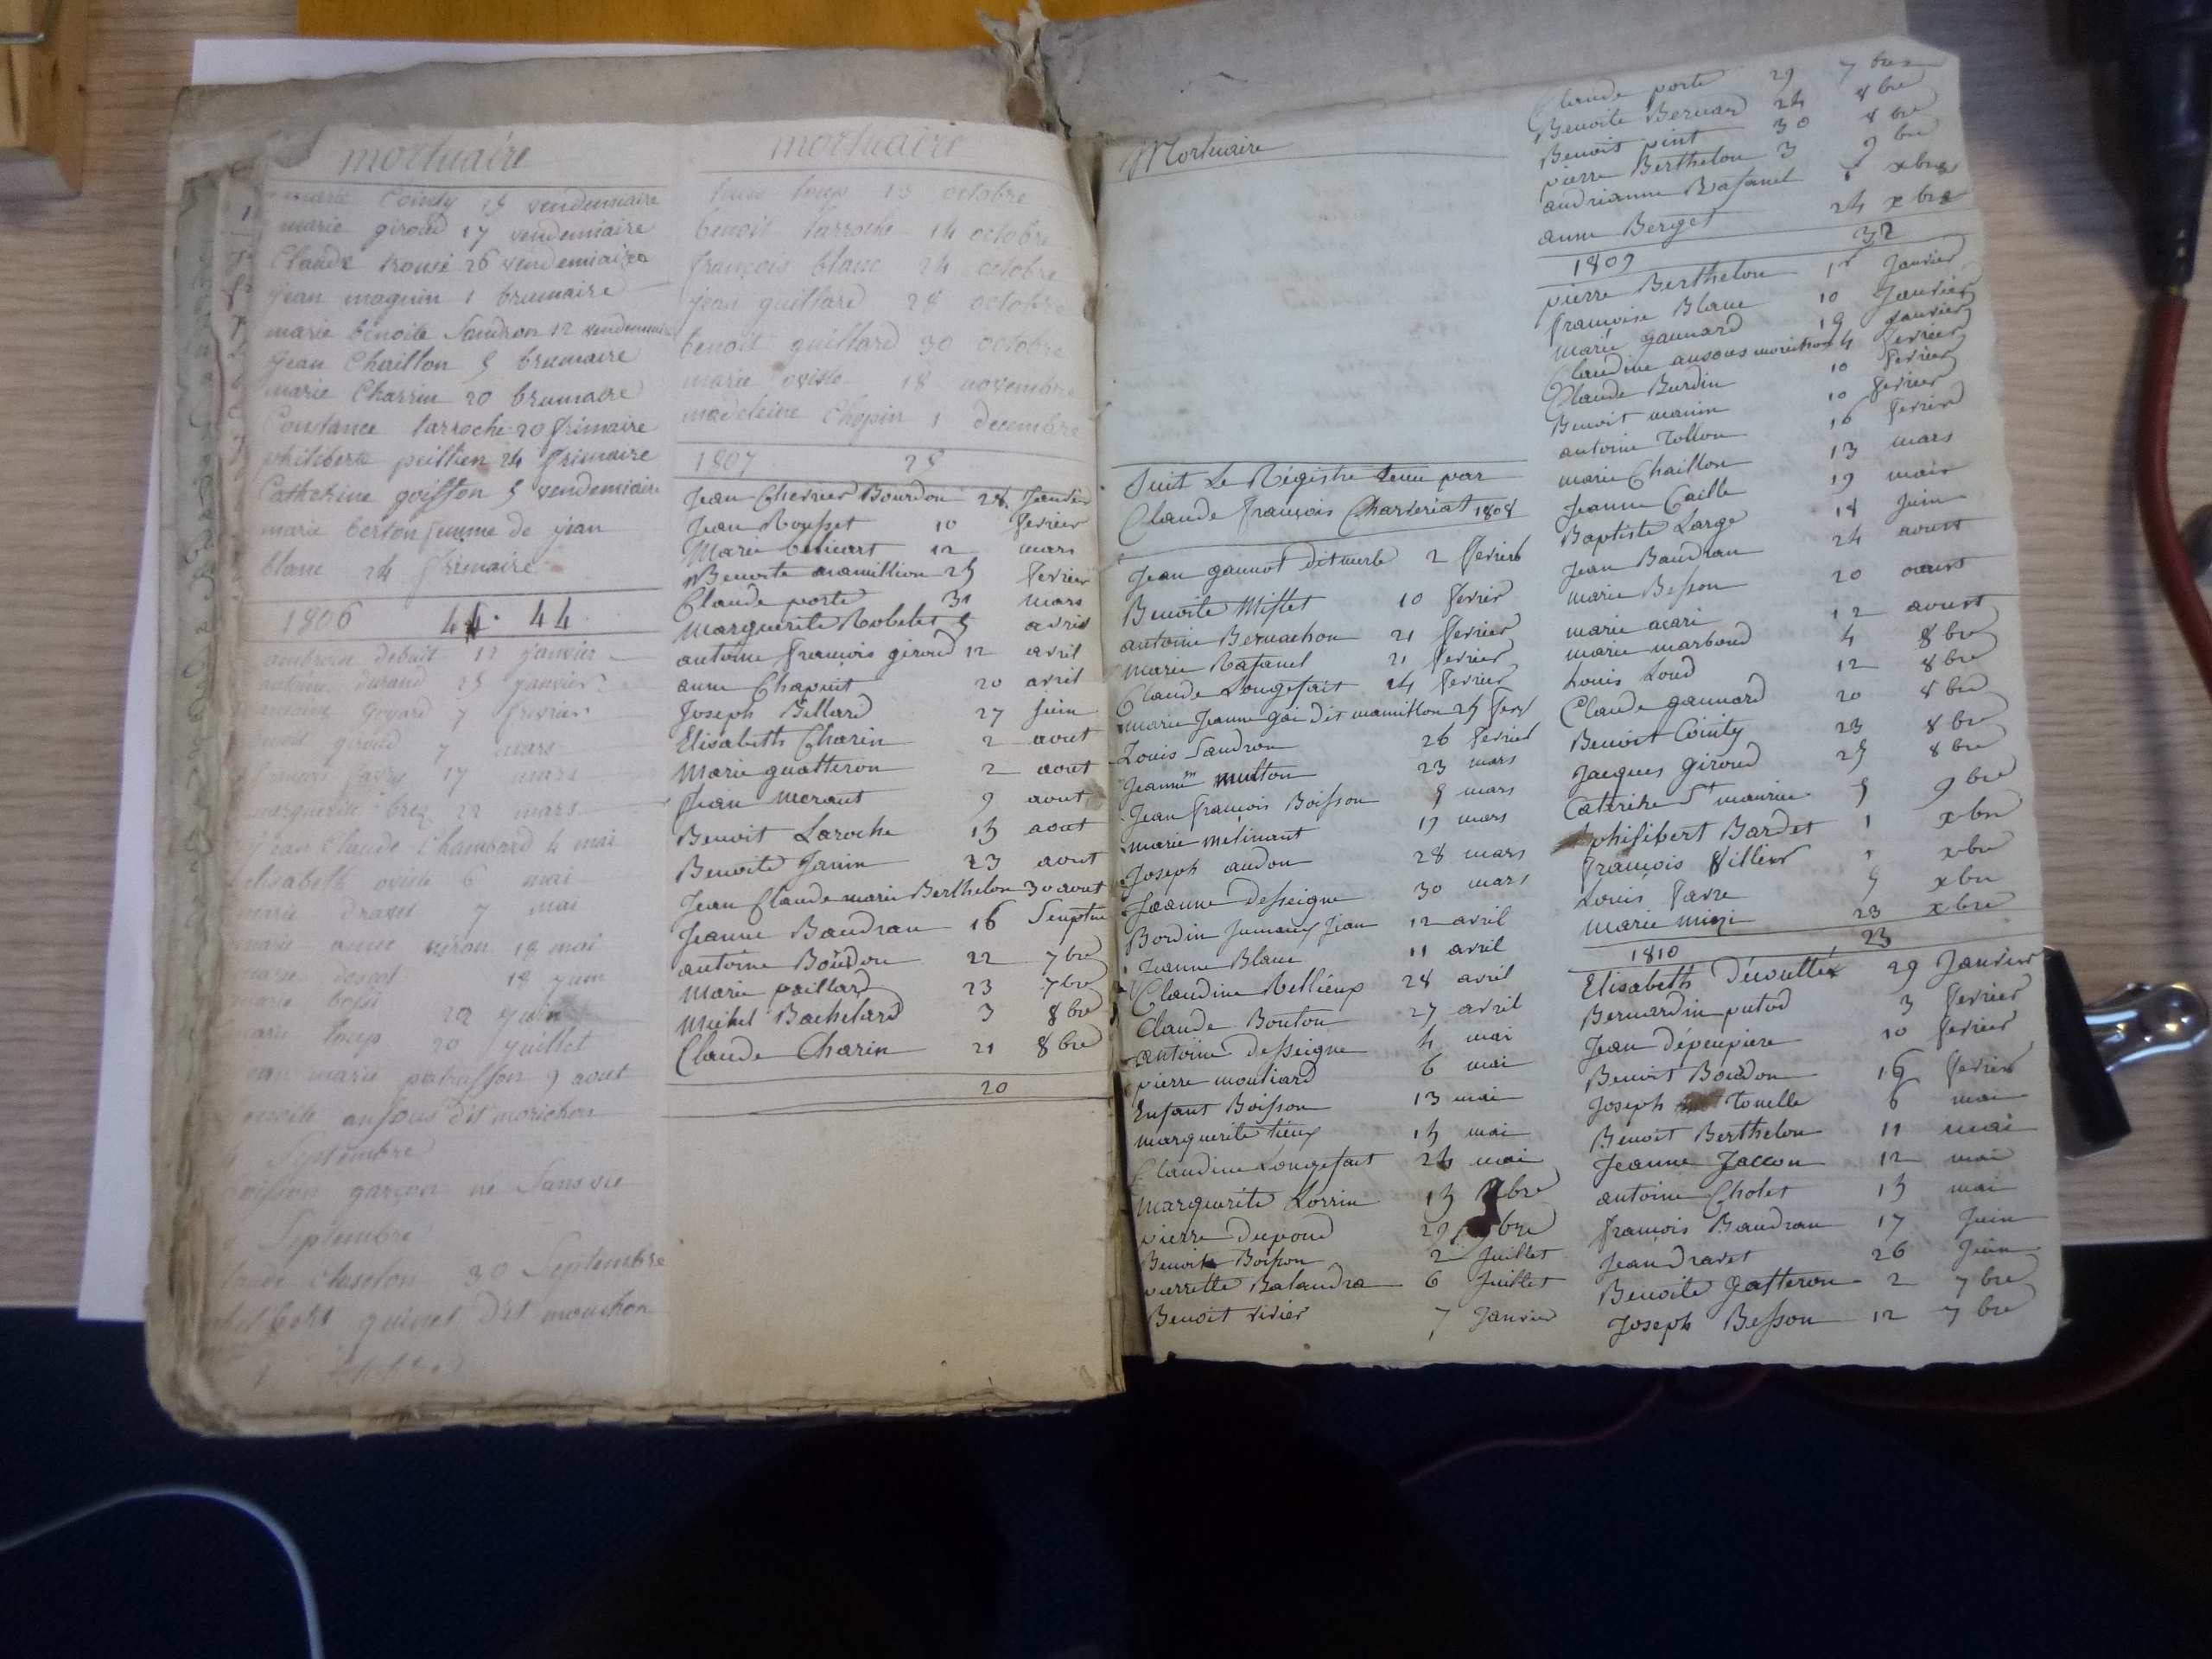 mortuaire
marie Cointy 15 vendemiaire
marie giroud 17 vendemiaire
Claude 26 vendemiaire
jean magnin 1 brumaire
marie benoite Sandron 12 vendemiaire
jean Chaillon 5 brumaire
marie Charrin 20 brumaire
Constance larroche 20 frimaire
philiberte peillien 24 frimaire
Catherine goisson 5 vendemiaire
marie berton femme de jean
blanc 24 frimaire
1806 44 44
ambroise debait 12 janvier
antoine durand 25 janvier
goyard 7 fevrier
giroud 7 mars
17 mars
marguerite 22 mars
jean Claude Chambard 4 mai
elisabeth oviste 6 mai
marie dravet 7 mai
marie anne 18 mai
marie 18 juin
marie 22 juin
loup 20 juillet
jean marie patrasson 9 aout
benoite ansous dit morichon
Septembre
goisson garçon né Sans vie
Septembre
30 Septembre
guinet dit mouchon
mortuaire
loup 13 octobre
benoit larroche 14 octobre
françois blanc 24 octobre
jean guillard 28 octobre
benoit guillard 30 octobre
marie oviste 18 novembre
madeleine Chopin 1 decembre
1807 28
Jean Chervier Bourdon 28 Janvier
Jean Rousset 10 fevrier
Marie 12 mars
Benoite mamillion 25 fevrier
Claude porte 31 mars
Marguerite Robelet 5 avril
antoine françois giroud 12 avril
anne Chapuit 20 avril
Joseph Billard 27 juin
Elisabeth Charin 2 aout
Marie gatteron 2 aout
Jean Merant 9 aout
Benoit Laroche 15 aout
Benoite Janin 23 aout
Jean Claude marie Berthelon 30 aout
Jeanne Baudran 16 Septbre
antoine Bourdon 22 7bre
Marie paillard 23 7bre
Michel Bachelard 3 8bre
Claude Charin 21 8bre
20
Mortuaire
Suit Le Régistre tenu par
Claude françois Charveriat 1808
Jean gannot dit merle 2 fevrier
Benoite Millet 10 fevrier
antoine Bernachon 21 fevrier
Marie Rafanel 21 fevrier
Claude Longefait 24 fevrier
marie Jeanne gai dit mamillon 25 fevr
Louis Sandron 26 fevrier
Jeanne multon 23 mars
Jean françois Boisson 9 mars
marie melinant 19 mars
Joseph audon 28 mars
Jeanne desseigne 30 mars
Bordin Jumeaux Jean 12 avril
Jeanne Blanc 11 avril
Claudine Rellieux 28 avril
Claude Bouton 27 avril
antoine desseigne 4 mai
pierre moutiard 6 mai
Enfant Boisson 13 mai
marguerite tieux 15 mai
Claudine Longefait 24 mai
Marguerite Lorrin 15 bre
pierre dupond 29 bre
Benoit Boisson 2 Juillet
pierrette Balandra 6 Juillet
Benoit vivier 7 Janvier
Claude porte 29 7bre
Benoite Bernard 24 8bre
Benoit pint 30 8bre
pierre Berthelon 3 9bre
andrianne Rafanel 8 xbre
anne Berget 24 xbre
1809 32
pierre Berthelon 1r Janvier
françoise Blanc 10 Janvier
marie gannard 19 Janvier
Claudine ansous morichon 4 fevrier
Claude Burdin 10 fevrier
Benoit manin 10 fevrier
antoine Tollon 16 fevrier
marie Chaillon 13 mars
Jeanne Caille 19 mars
Baptiste Large 18 Juin
Jean Baudran 24 aoust
marie Besson 20 aoust
marie acari 12 aoust
marie marboud 4 8bre
Louis Loud 12 8bre
Claude gannard 20 8bre
Benoit Cointy 23 8bre
Jacques giroud 25 8bre
Catrine St maurice 5 9bre
philibert Bardet 1 xbre
françois villier 1 xbre
Louis favre 5 xbre
marie mizi 23 xbre
1810 23
Elisabeth Découtté 29 Janvier
Bernardin putod 3 fevrier
Jean dépeupiere 10 fevrier
Benoit Bourdon 16 fevrier
Joseph tonelle 6 mai
Benoit Berthelon 11 mai
Jeanne Jaccon 12 mai
antoine Cholet 15 mai
françois Baudran 17 Juin
Jean dravet 26 Juin
Benoite gatteron 2 7bre
Joseph Besson 12 7bre